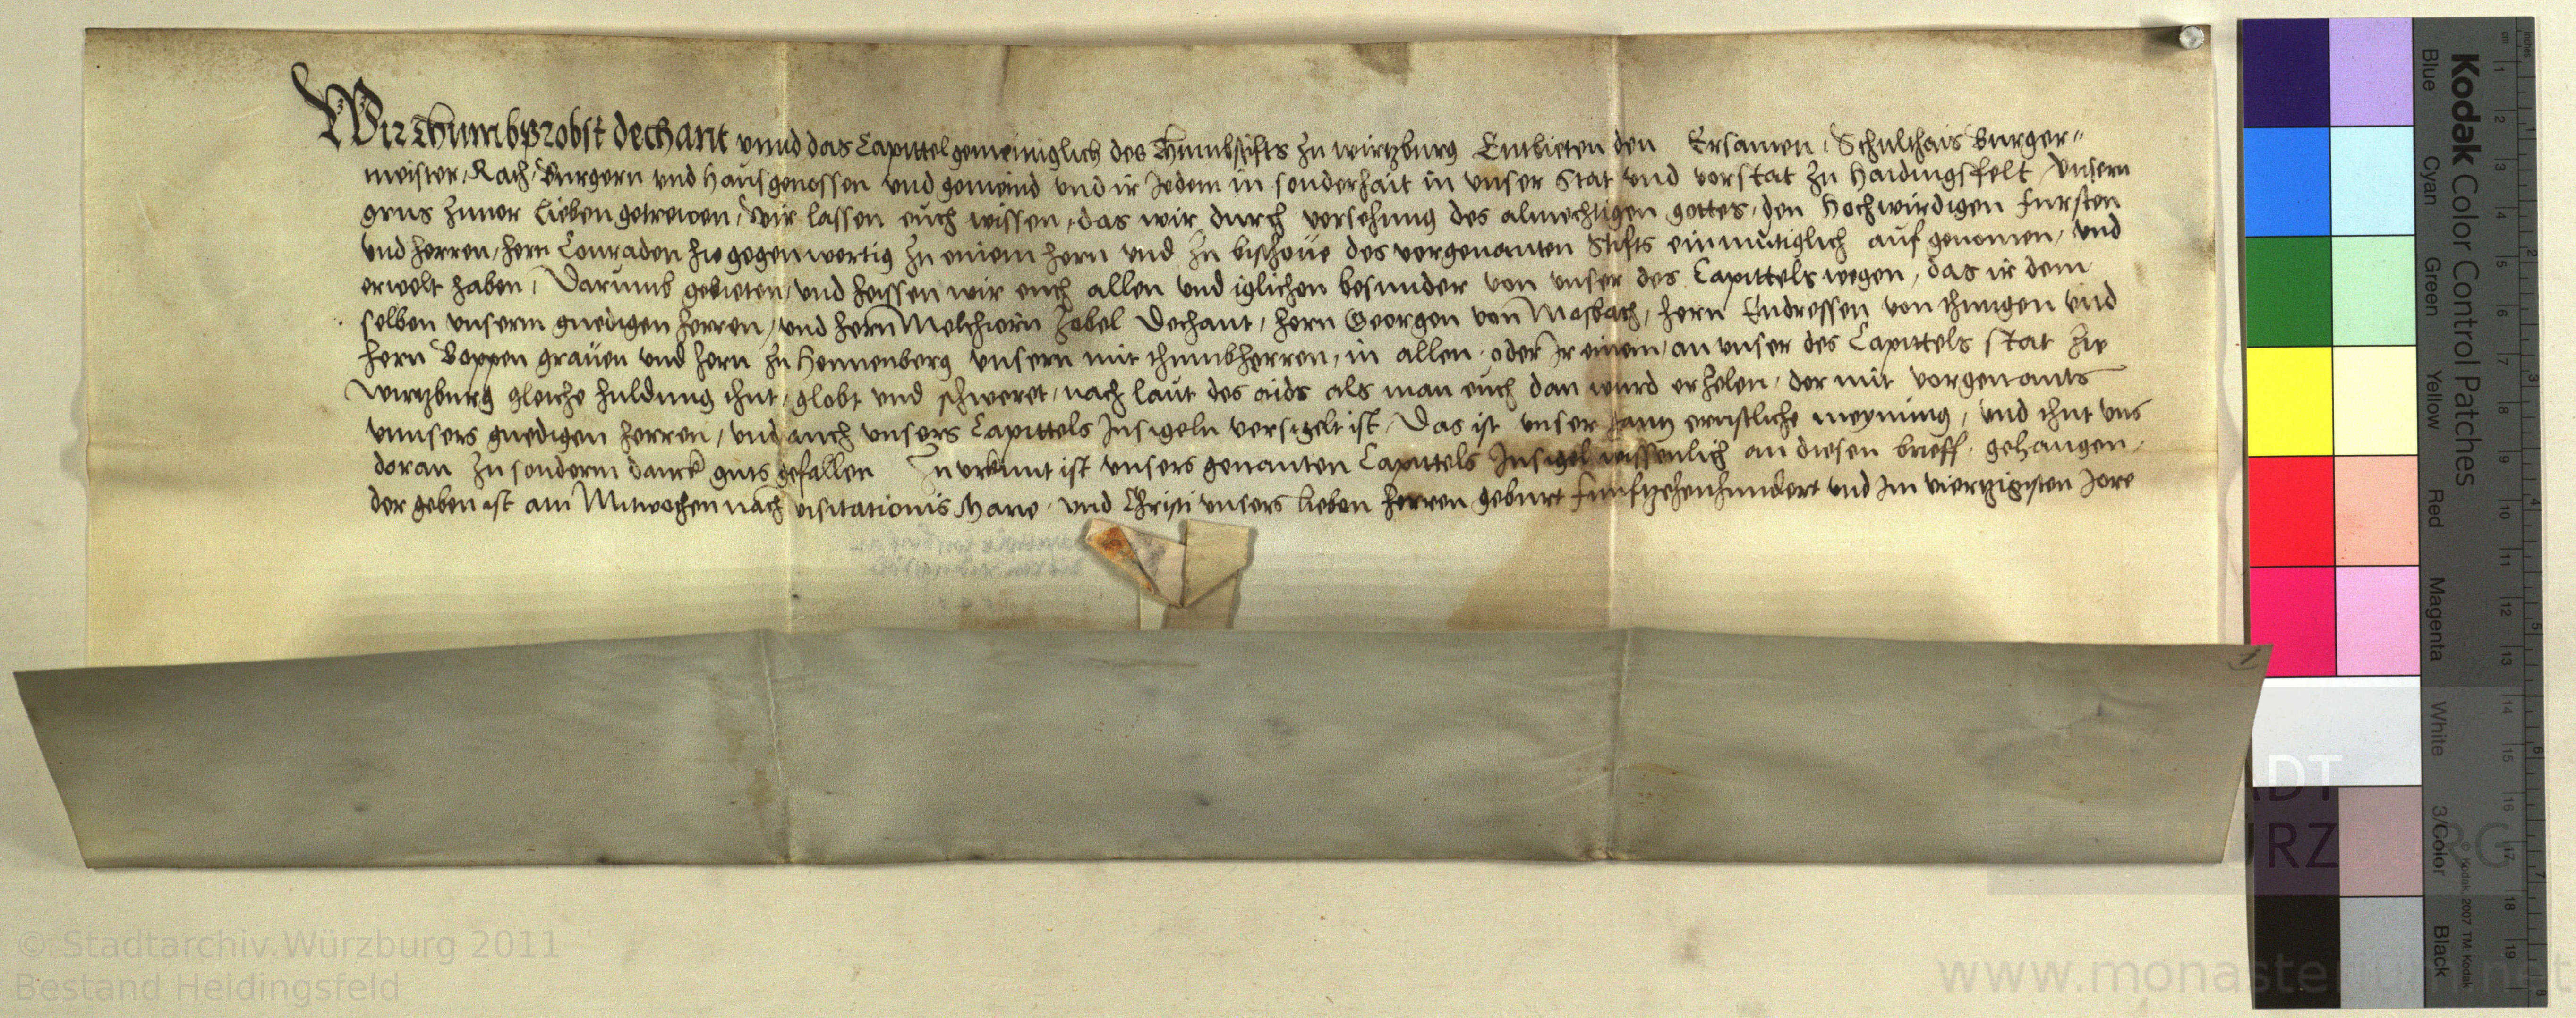 Wir Thumbprobst dechant vnnd das Capittel gemeiniglich des Thumbstifts zu wirtzburg Entbieten den Ersamen, Schulthais Burger-
meister, Rath, Burgern vnd Hausgenossen vnd gemeind vnd ir Jedem in sonderhait in vnser Stat vnd vorstat zu Haidingsfelt, vnsern
grus zuuor Lieben getrewen, Wir lassen euch wissen, das wir durch versehung des almechtigen gottes, den Hochwirdigen fursten
vnd herren, hern Conraden hie gegenwertig zu einem hern vnd zu bischoue des vorgenanten Stifts einmutiglich aufgenomen, vnd
erwelt haben, Darumb gebieten, vnd heissen wir euch allen vnd iglichen besunder von vnser des Capittels wegen, das ir dem
selben vnserm gnedigen herren, vnd hern Melchiorn Zobel Dechant, hern Georgen von Masbach, hern Endressen von thungen vnd
hern Boppen grauen vnd hern zu Hennenberg vnsern mit thumbherren, in allen, oder Ir einem, an vnser des Capittels stat hie
wirtzburg gleiche huldung thut, globt vnd schweret, nach laut des aids als man euch dan wurd erholen, der mit vorgenants
vnnsers gnedigen herren, vnd auch vnsers Capittels Insigeln versigelt ist, Das ist vnser gantz ernstliche meynung, vnd thut vns
doran zu sonderm danck guts gefallen In vrkunt ist vnsers genanten Capittels Insigel wissenlich an diesen brieff gehangen,
der geben ist am Mitwochen nach visitationis Marie, vnd Christi vnsers lieben herren geburt funftzehenhundert vnd Im viertzigisten Jare
1
© Stadtarchiv Würzburg 2011
Bestand Heidingsfeld
www.monasterium.net
Kodak Color Control Patches
Blue Cyan Green Yellow Red Magenta White 3/Color Black
© Kodak, 2007 TM: Kodak